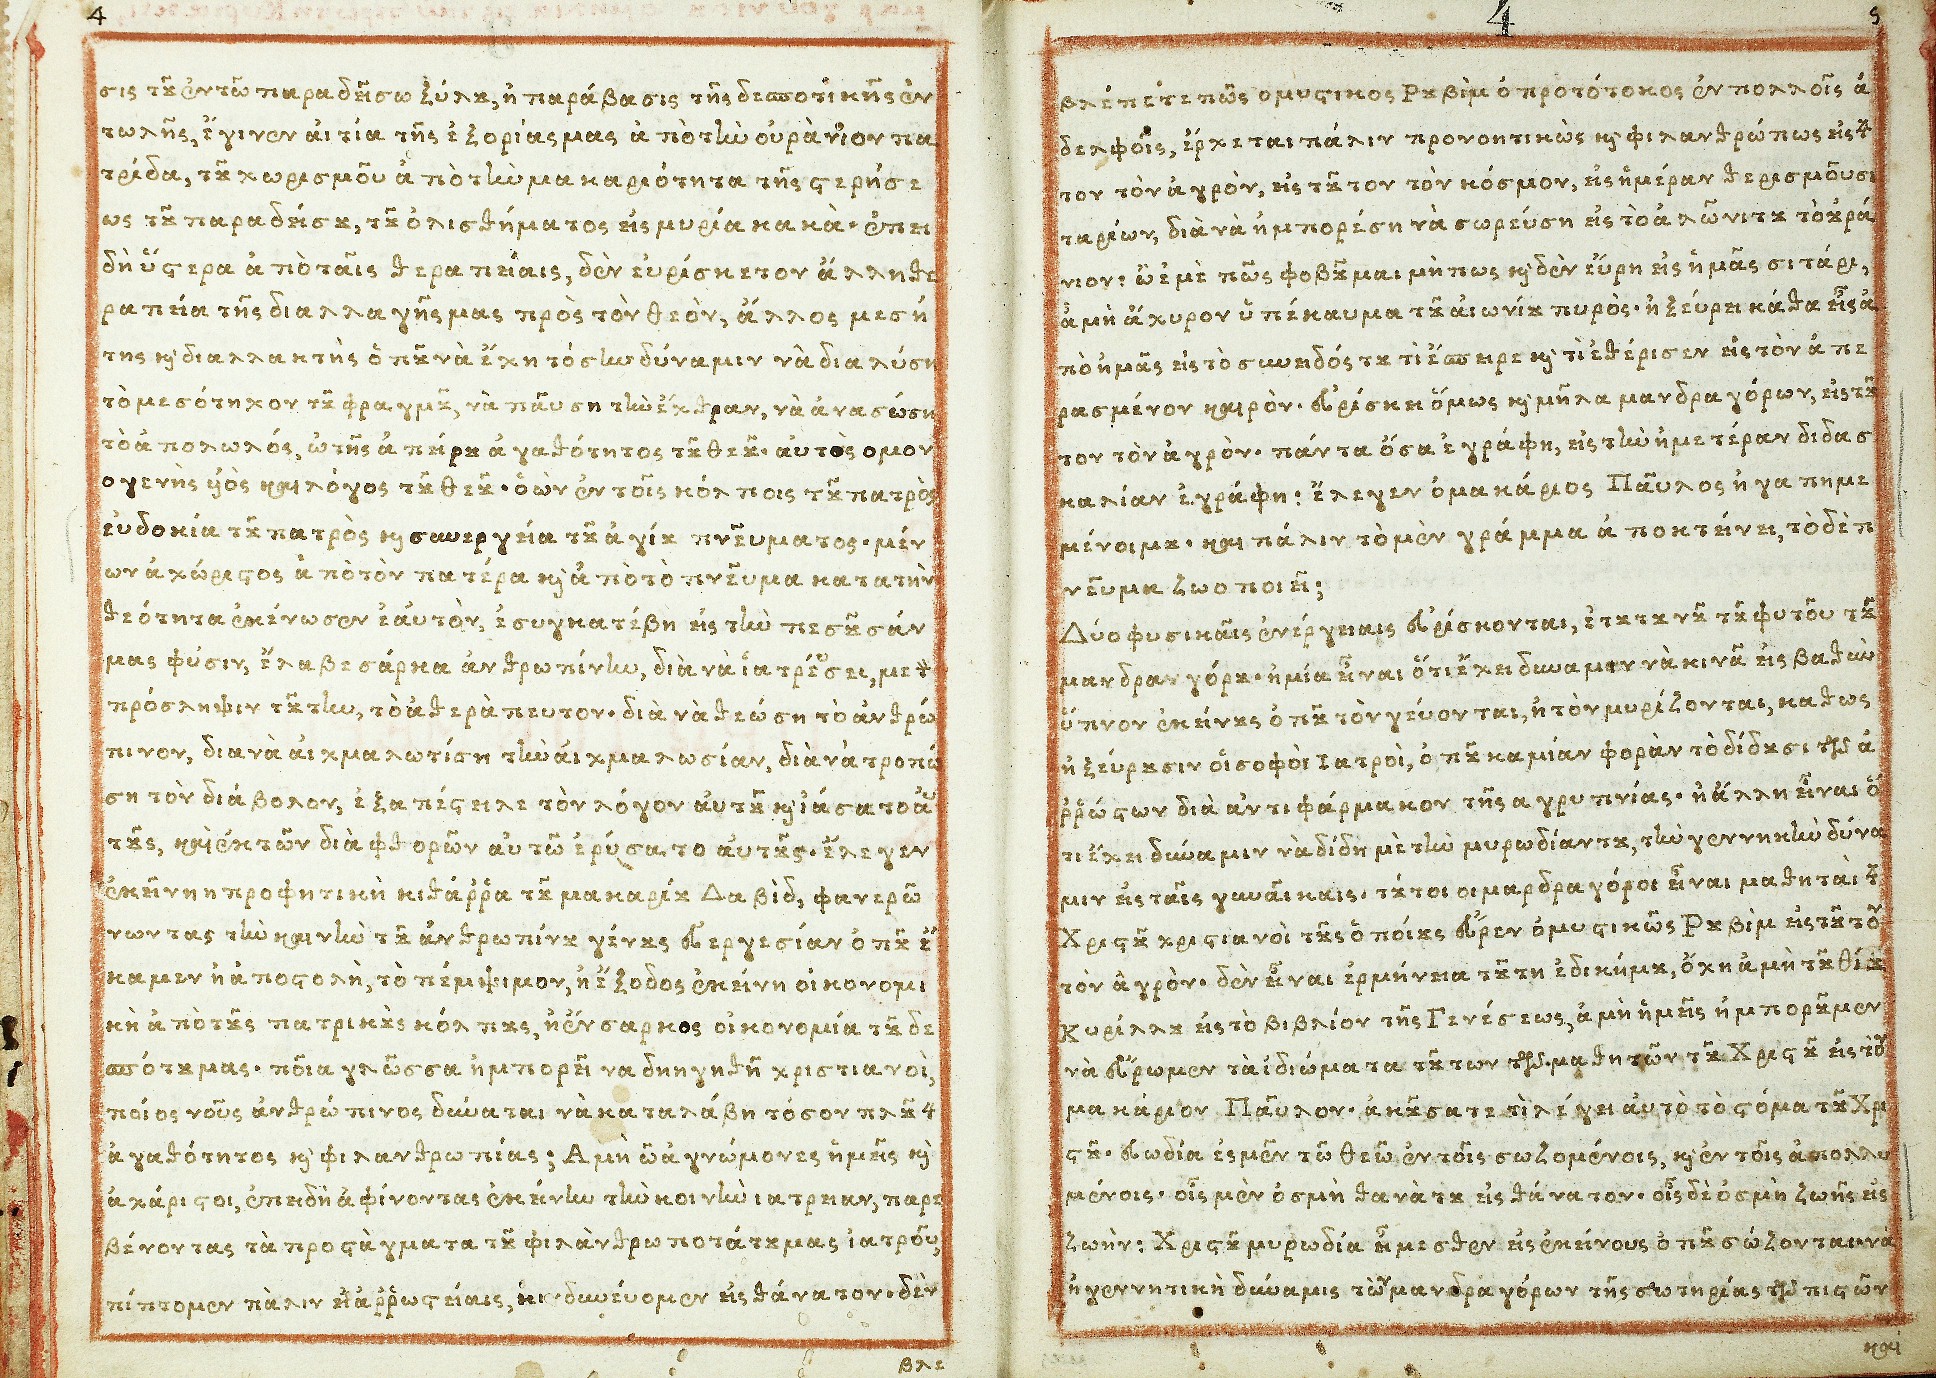 4
σις τȣ͂ ἐν τῶ παραδείσω ξύλȣ, ἡ παράβασις τῆς δεσποτικῆς ἐν
τωλῆς, ἔγινεν αἰτία τῆς ἐξορίας μας ἀπὸ τὴν οὐράνιον πα
τρίδα, τȣ͂ χωρισμοῦ ἀπὸ τὴν μακαριότητα τῆς στερήσε
ως τȣ͂ παραδείσȣ, τȣ͂ ὀλισθήματος εἰς μυρία κακὰ· ἐπει
δὴ ὕστερα ἀπὸ ταῖς θεραπείαις, δὲν εὑρίσκετον ἄλλη θε
ραπεία τῆς διαλλαγῆς μας πρὸς τὸν θεὸν, ἄλλος μεσή
της κ̣ διαλλακτὴς ὁπȣ͂ νὰ ἔχη τόσην δύναμιν νὰ διαλύση
τὸ μεσότηχον τȣ͂ φραγμȣ͂, νὰ παῦση τὴν ἔχθραν, νὰ ἀνασώση
τὸ ἀπολωλός, ὢ τῆς ἀπείρȣ ἀγαθότητος τȣ͂ θεȣ͂· αὐτὸς ὁ μον
ογενὴς ὑϊὸς καὶ λόγος τȣ͂ θεȣ͂· ὁ ὢν ἐν τοῖς κόλποις τȣ͂ πατρὸς
εὐδοκία τȣ͂ πατρὸς κ̣ συνεργεία τȣ͂ ἁγίȣ πνεύματος· μέν
ων ἀχώριστος ἀπὸ τὸν πατέρα κ̣ ἀπὸ τὸ πνεῦμα κατα τὴν
θεότητα ἐκένωσεν ἑαυτὸν, ἐσυγκατέβη εἰς τὴν πεσȣ͂σάν
μας φύσιν, ἔλαβε σάρκα ἀνθρωπίνην, διὰ νὰ ἰατρέυσει, με τ̀
πρόσληψιν τȣ͂την, τὸ ἀθεράπευτον· διὰ νὰ θεώση τὸ ἀνθρώ
πινον, δια νὰ αἰχμαλωτίση τὴν αἰχμαλωσίαν, διὰ νὰ τροπώ
ση τὸν διάβολον, ἐξαπέστειλε τὸν λόγον αὐτȣ͂ κ̣ ἰάσατο αὐ
τȣ͂ς, καὶ ἐκ τῶν διὰφθορῶν αὐτῶ ἐρύσατο αὐτȣ͂ς· ἔλεγεν
ἐκείνη η προφητικὴ κιθάῤῥα τȣ͂ μακαρίȣ Δαβὶδ, φανερῶ
νωντας τὴν καινὴν τȣ͂ ἀνθρωπίνȣ γένȣς εὐεργεσίαν ὁπȣ͂ ἔ
καμεν ἡ ἀποστολὴ, τὸ πέμψιμον, ἡ ἔξοδος ἐκείνη οἰκονομι
κὴ ἀπὸ τȣ͂ς πατρικȣ̀ς κόλπȣς, ἡ ἔνσαρκος οἰκονομία τȣ͂ δε
σπότȣ μας· ποία γλῶσσα ἠμπορεῖ να διηγηθῆ χριστιανοὶ,
ποίος νοῦς ἀνθρώπινος δύναται νὰ καταλάβη τόσον πλȣ͂τ
ἀγαθότητος κ̣ φιλανθρωπίας; Αμὴ ὢ ἀγνώμονες ἡμεῖς κ̣
ἀχάριστοι, ἐπειδὴ ἀφίνοντας ἐκείνην τὴν κοινὴν ιατρειαν, παρα
βένοντας τὰ προστάγματα τȣ͂ φιλὰνθρωποτάτȣ μας ἰατροῦ,
πίπτομεν πάλιν εἰς ἀῤῥωστείαις, κι κινδυνέυομεν εἰς θάνατον· δὲν
βλε
4
5
βλέπετε πῶς ο μυστικος Ρȣβὶμ ὁ πρωτότοκος ἐν πολλοῖς ἀ
δελφοῖς, ἔρχεται πάλιν προνοητικὼς κ̣ φιλανθρώπως εἰς τȣ͂
τον τὸν ἀγρὸν, εἰς τȣ͂τον τὸν κόσμον, εἰς ἡμέραν θερισμοῦ σι
ταρίων, διὰ νὰ ἡμπορέση νὰ σωρεύση εἰς τὸ ἁλῶνι τȣ τὸ ȣ̓ρά
νιον: ὢ ἐμὲ πῶς φοβȣ͂μαι μὴ πως κ̣ δὲν εὕρη εἰς ἡμᾶς σιτάρι,
ἀμὴ ἄχυρον ὑπέκαυμα τȣ͂ αἰωνίȣ πυρὸς· ἠξεύρει κάθα εἷς ἀ
πὸ ἡμᾶς εἰς τὸ συνειδός τȣ τὶ ἔσπειρε κ̣ τὶ ἐθέρισεν εἰς τὸν ἀπε
ρασμένον καιρὸν· εὑρίσκει ὅμως κ̣ μῆλα μανδραγόρων, εἰς τȣ͂
τον τὸν ἀγρὸν· πάντα ὅσα ἐγράφη, εἰς τὴν ἡμετέραν διδασ
καλίαν ἐγράφη: ἔλεγεν ὁ μακάριος Παῦλος ἠγαπημε
μένοι μȣ· καὶ πάλιν τὸ μὲν γράμμα ἀποκτείνει, τὸ δὲ π
νεῦμα ζωοποιεῖ;
Δύο φυσικαῖς ἐνέργειαις εὑρίσκονται, ἐτȣτȣνȣ͂ τȣ͂ φυτοῦ τȣ͂
μανδραγόρȣ· ἡ μία εἶναι ὅτι ἔχει δύναμιν νὰ κινᾶ εἰς βαθὺν
ὕπνον ἐκείνȣς ὁπȣ͂ τὸν γεύονται, ἢ τὸν μυρίζονται, καθως
ἠξεύρȣσιν οἱ σοφὸι Ιατροὶ, ὁπȣ͂ καμίαν φορὰν τὸ δίδȣσι τῶν ἀ
ῤῥώστων διὰ ἀντιφάρμακον τῆς αγρυπνίας· ἡ ἄλλη εἶναι ὅ
τι ἔχει δύναμιν νὰ δίδη μὲ τὴν μυρωδίαν τȣ, τὴν γεννηκὴν δύνα
μιν εἰς ταῖς γυναῖκαις· τȣ́τοι οι μαρδραγόροι εἶναι μαθηταὶ τȣ͂
Χριστȣ͂ χριστιανοὶ τȣ͂ς ὁποίȣς εὗρεν ὁ μυστικῶς Ρȣβὶμ εἰς τȣ͂τον
τὸν ἀγρὸν· δὲν εἶναι ἑρμήνεια τȣ́τη ἐδική μȣ, ὄχη ἀμὴ τȣ͂ θίȣ
Κυρίλλȣ εἰς τὸ βιβλίον τῆς Γενέσεως, ἀμὴ ἡμεῖς ἠμπορȣ͂μεν
νὰ εὕρωμεν τὰ ἰδιώματα τȣ́των τῶν μαθητῶν τȣ͂ Χριστȣ͂ εἰς τὸν
μακάριον Παῦλον· ἀκȣ́σατε τὶ λέγει αὐτὸ τὸ στόμα τȣ͂ Χρι
στȣ͂· εὐωδία ἐσμὲν τῶ θεῶ ἐν τοῖς σωζομένοις, κ̣ ἐν τοῖς ἀπολλυ
μένοις· οἷς μὲν ὀσμὴ θανάτȣ εἰς θάνατον· οἷς δὲ ὀσμὴ ζωῆς εἰς
ζωὴν: Χριστȣ͂ μυρωδία εἴμεσθεν εἰς ἐκείνους ὁπȣ͂ σώζονται· νὰ
ἡ γεννητικὴ δύναμις τῶν μανδραγόρων τῆς σωτηρίας τῶν πιστῶν
καὶ